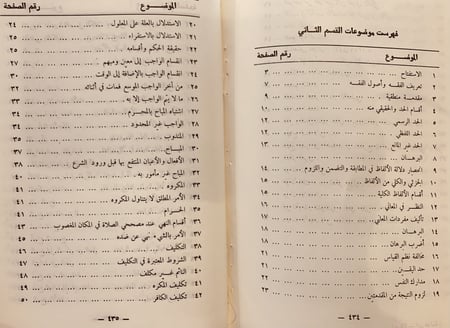 فهرست موضوعات القسم الثاني
الموضوع رقم الصفحة
١ الاستفتاح ٣
٢ تعريف الفقه وأصول الفقه ٧
٣ مقدمة منطقية ٩
٤ أقسام الحد والحقيقي منه ١٠
٥ الحد الرسمي ١٢
٦ الحد اللفظي ١٢
٧ الحد غير المانع ١٢
٨ البرهان
٩ انحصار دلالة الألفاظ في المطابقة والتضمن واللزوم ١٤
١٠ الجزئي والكلي من الألفاظ ١٤
١١ أقسام الألفاظ الكلية ١٥
١٢ النظر في المعاني ١٦
١٣ تأليف مفردات المعاني
١٤ البرهان
١٥ أضرب البرهان ١٨
١٦ مخالفة نظم القياس
١٧ حد اليقين
١٨ مدارك النفس
١٩ لزوم النتيجة من المقدمتين ٢٣
٤٣٤
الموضوع رقم الصفحة
٢٠ الاستدلال بالعلة على المعلول ٢٤
٢١ الاستدلال بالاستقراء ٢٥
٢٢ حقيقة الحكم وأقسامه ٢٥
٢٣ انقسام الواجب إلى معين ومبهم ٢٧
٢٤ انقسام الواجب بالإضافة إلى الوقت ٣٠
٢٥ من أخر الواجب الموسع فمات في أثنائه ٣٢
٢٦ ما لا يتم الواجب إلا به ٣٣
٢٧ اشتباه المباح بالمحرم ٣٤
٢٨ الواجب غير المحدود ٣٤
٢٩ المندوب ٣٥
٣٠ المباح ٣٧
٣١ الأفعال والأعيان المنتفع بها قبل ورود الشرع ٣٨
٣٢ المباح غير مأمور به ٤٠
٣٣ المكروه ٤١
٣٤ الأمر المطلق لا يتناول المكروه ٤١
٣٥ الحرام
٣٦ أقسام النهي عند مصححي الصلاة في المكان المغصوب ٤٣
٣٧ الأمر بالشيء نهي عن ضده ٤٥
٣٨ التكليف
٣٩ الشروط المعتبرة في التكليف ٤٧
٤٠ النائم غير مكلف ٤٨
٤١ تكليف المكره ٤٩
٤٢ تكليف الكافر ٥٠
٤٣٥